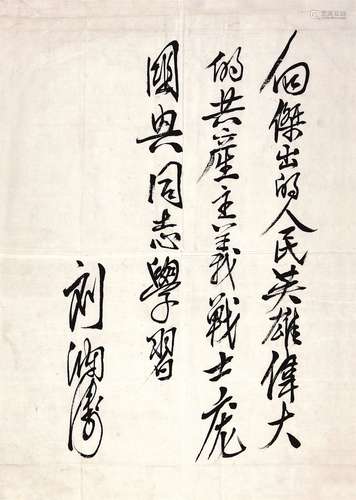 向傑出的人民英雄偉大
的共產主義戰士龐
國興同志學習
劉瀾濤